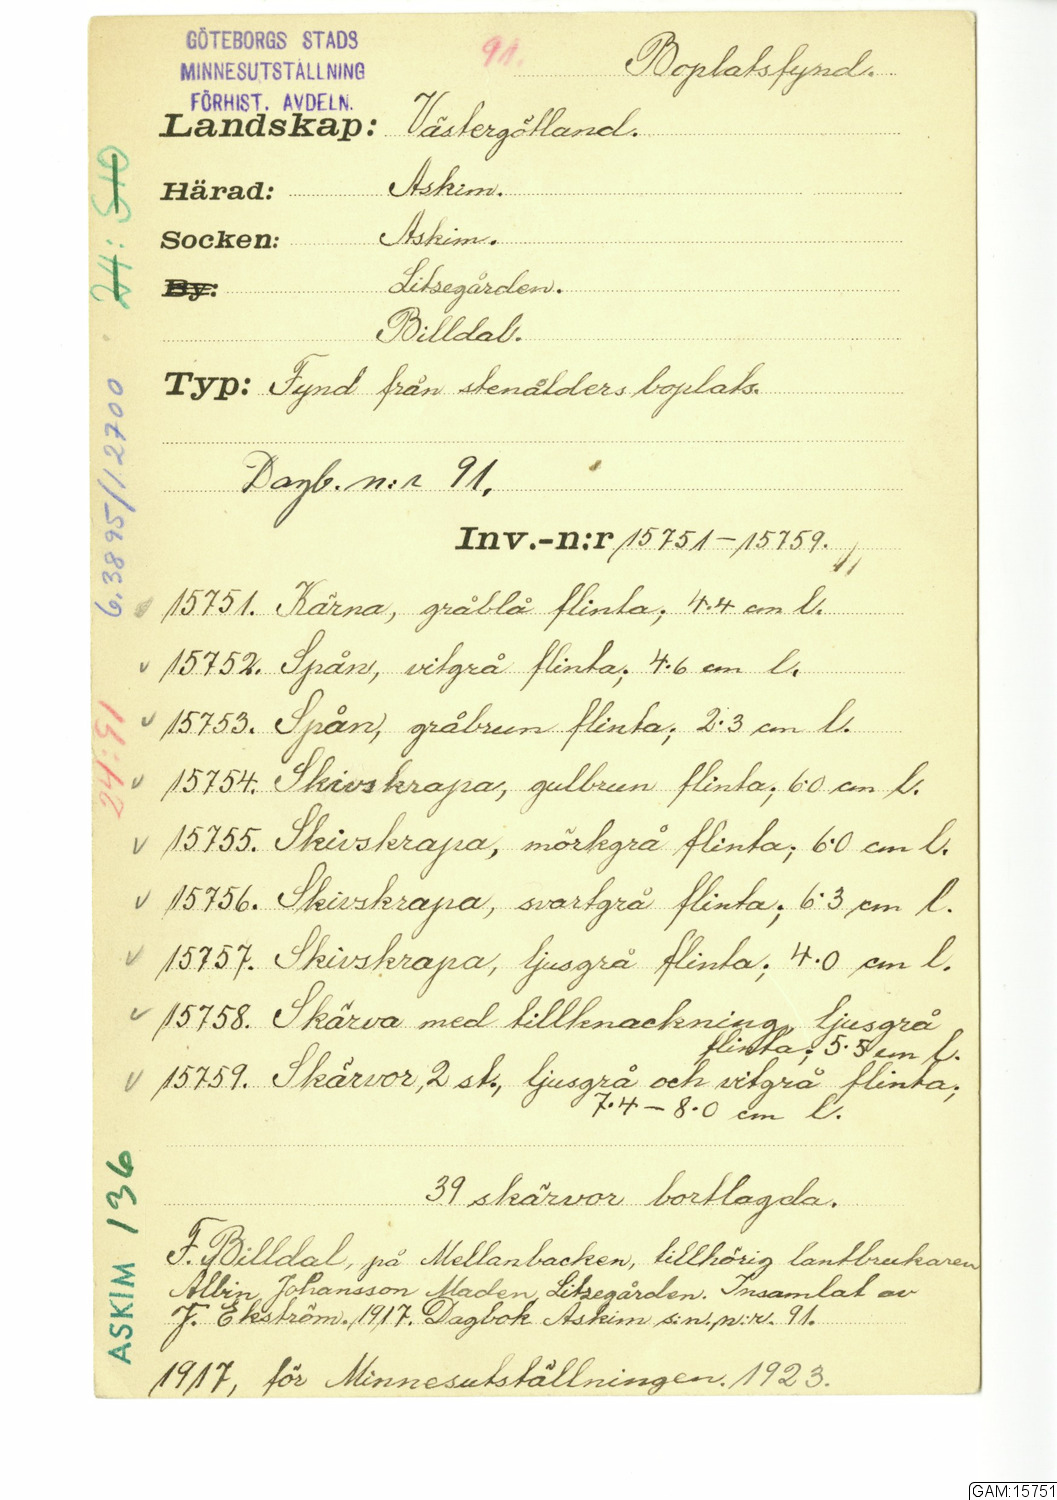 GÖTEBORGS STADS
MINNESUTSTÄLLNING
FÖRHIST. AVDELN.
91.
Boplatsfynd.
Landskap: Västergötland.
Härad: Askim.
Socken: Askim.
By: Litsegården.
Billdal.
Typ: Fynd från stenålders boplats.
Dagb. n:r 91.
Inv.-n:r 15751-15759.
15751. Kärna, gråblå flinta; 4.4 cm l.
15752. Spån, vitgrå flinta; 4.6 cm l.
15753. Spån, gråbrun flinta; 2.3 cm l.
15754. Skivskrapa, gulbrun flinta; 6.0 cm l.
15755. Skivskrapa, mörkgrå flinta; 6.0 cm l.
15756. Skivskrapa, svartgrå flinta; 6.3 cm l.
15757. Skivskrapa, ljusgrå flinta; 4.0 cm l.
15758. Skärva med tillknackning, ljusgrå
flinta; 5.5 cm l.
15759. Skärvor, 2 st., ljusgrå och vitgrå flinta;
7.4-8.0 cm l.
39 skärvor bortlagda.
F. Billdal, på Mellanbacken, tillhörig lantbrukaren
Albin Johansson Maden, Litsegården. Insamlat av
J. Ekström. 1917. Dagbok Askim s:n, n:r. 91.
1917, för Minnesutställningen. 1923.
24:510
6.3895/12700
24:91
ASKIM 136
GAM:15751